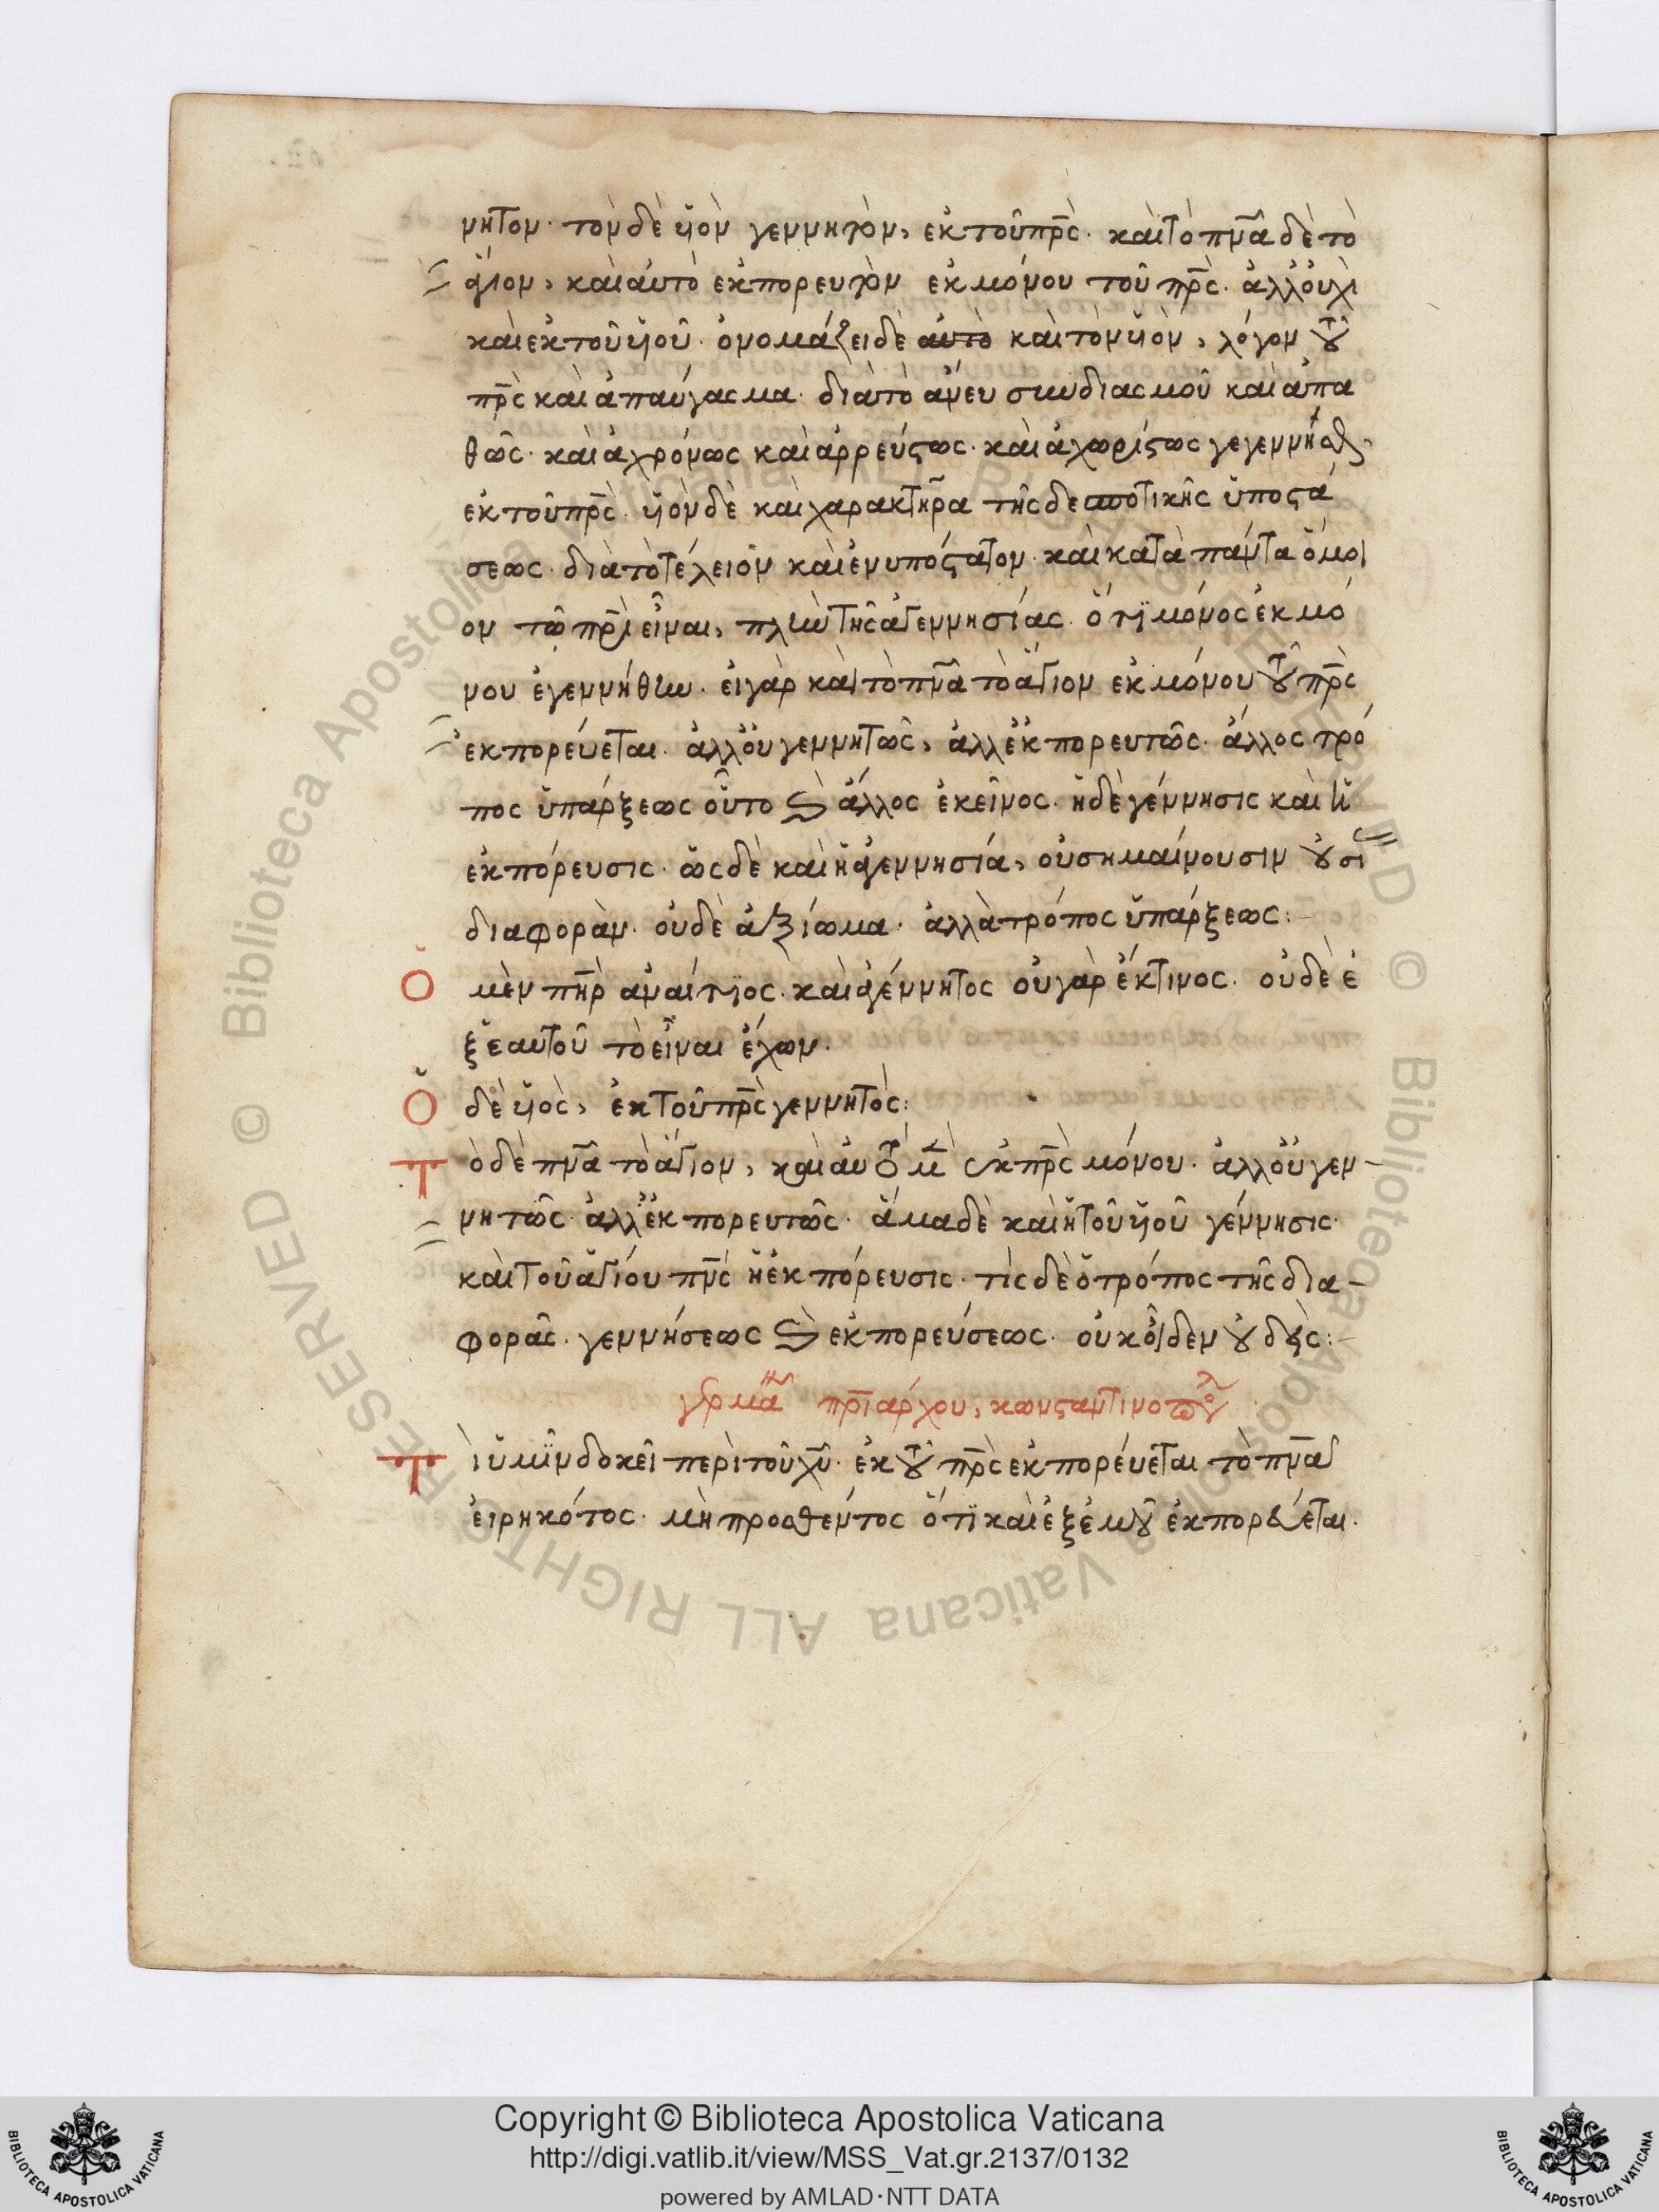 νητον· τὸν δὲ ὑϊὸν γεννητὸν, ἐκ τοῦ πρ̅ς· καὶ τὸ πν̅α δὲ τὸ
ἅγιον, καὶ αὐτὸ ἐκπορευτὸν ἐκ μόνου τοῦ πρ̅ς· ἀλλ' οὐχὶ
καὶ ἐκ τοῦ ὑϊοῦ· ὀνομάζει δὲ αὐτὸ καὶ τὸν ὑϊὸν, λόγον τοῦ
πρ̅ς καὶ ἀπαύγασμα· διὰ τὸ ἄνευ συνδιασμοῦ καὶ ἀπα
θῶς· καὶ ἀχρόνως καὶ ἀρρεύστως· καὶ ἀχωρίστως γεγεννῆσθ,
ἐκ τοῦ πρ̅ς· ὑϊὸν δὲ καὶ χαρακτῆρα τῆς δεσποτικῆς ὑποστά
σεως· διὰ τὸ τέλειον καὶ ἐνυπόστατον· καὶ κατὰ πάντα ὅμοι
ον τῶ πρ̅ι εἶναι, πλὴν τῆς ἀγεννησίας· ὅτι μόνος ἐκ μό
νου ἐγεννήθη· εἰ γὰρ καὶ τὸ πν̅α τὸ ἅγιον ἐκ μόνου τοῦ πρ̅ς
ἐκπορεύεται· ἀλλ' οὐ γεννητῶς, ἀλλ' ἐκπορευτῶς· ἄλλος τρό
πος ὑπάρξεως οὗτο ϗ ἄλλος ἐκεῖνος· ἡ δὲ γέννησις καὶ ἡ
ἐκπόρευσις· ὡς δὲ καὶ ἡ ἀγεννησία, οὐ σημαίνουσιν οὐσι
διαφορὰν· οὐδὲ ἀξίωμα· ἀλλὰ τρόπος ὑπάρξεως:
Ὁ μὲν πη̅ρ ἀναίτιος· καὶ ἀγέννητος οὐ γὰρ ἔκ τινος· οὐδὲ ἐ
ξ ἑαυτοῦ τὸ εἶναι ἔχων·
Ὁ δὲ ὑϊὸς, ἐκ τοῦ πρ̅ς γεννητὸς:
Τὸ δὲ πν̅α τὸ ἅγιον, καὶ αὐτὸ μὲν ἐκ πρ̅ς μόνου· ἀλλ' οὐ γεν-
νητῶς· ἀλλ' ἐκπορευτῶς· ἅμα δὲ καὶ ἡ τοῦ ὑϊοῦ γέννησις·
καὶ τοῦ ἁγίου πν̅ς ἡ ἐκπόρευσις· τίς δὲ ὁ τρόπος τῆς δια-
φορᾶς· γεννήσεως ϗ ἐκπορεύσεως· οὐκ οἶδεν οὐδεὶς:
γρμα πρ̅ιάρχου, κωνσταντινοπολ
Τὶ ὑμῖν δοκεῖ περὶ τοῦ χ̅υ· ἐκ τοῦ πρ̅ς ἐκπορεύεται τὸ πν̅α
εἰρηκότος· μὴ προσθέντος ὅτι καὶ ἐξ ἐμοῦ ἐκπορεύεται.
Copyright © Biblioteca Apostolica Vaticana
http://digi.vatlib.it/view/MSS_Vat.gr.2137/0132
powered by AMLAD·NTT DATA
BIBLIOTECA APOSTOLICA VATICANA
BIBLIOTECA APOSTOLICA VATICANA
© Biblioteca Apostolica Vaticana ALL RIGHTS RESERVED © Biblioteca Apostolica Vaticana ALL RIGHTS RESERVED